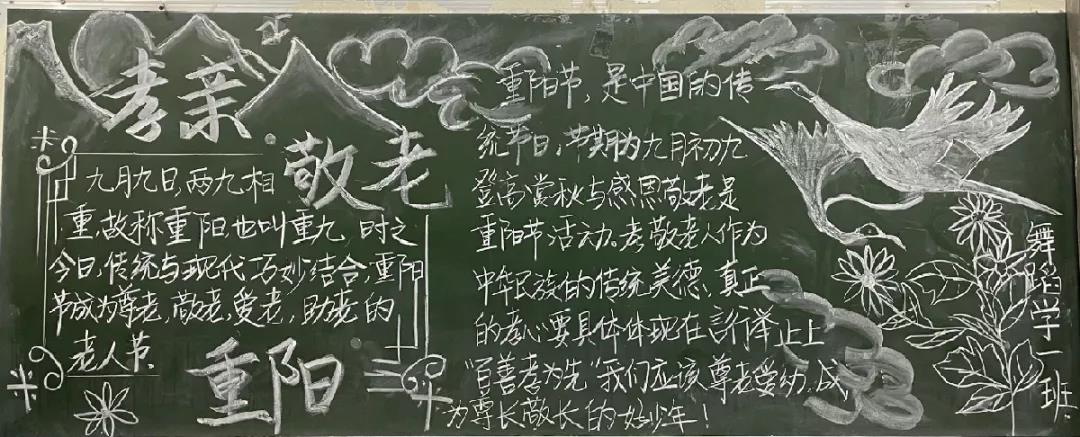 孝亲
敬老
九月九日,两九相
重,故称重阳,也叫重九,时之
今日,传统与现代巧妙结合,重阳
节成为尊老,敬老,爱老,助老的
老人节
重阳
重阳节,是中国的传
统节日,节期为九月初九
登高赏秋与感恩敬老是
重阳节活动。孝敬老人作为
中华民族的传统美德,真正
的孝心要具体体现在言行举止上
"百善孝为先"我们应该尊老爱幼,成
为尊长敬长的好少年!
舞蹈学一班